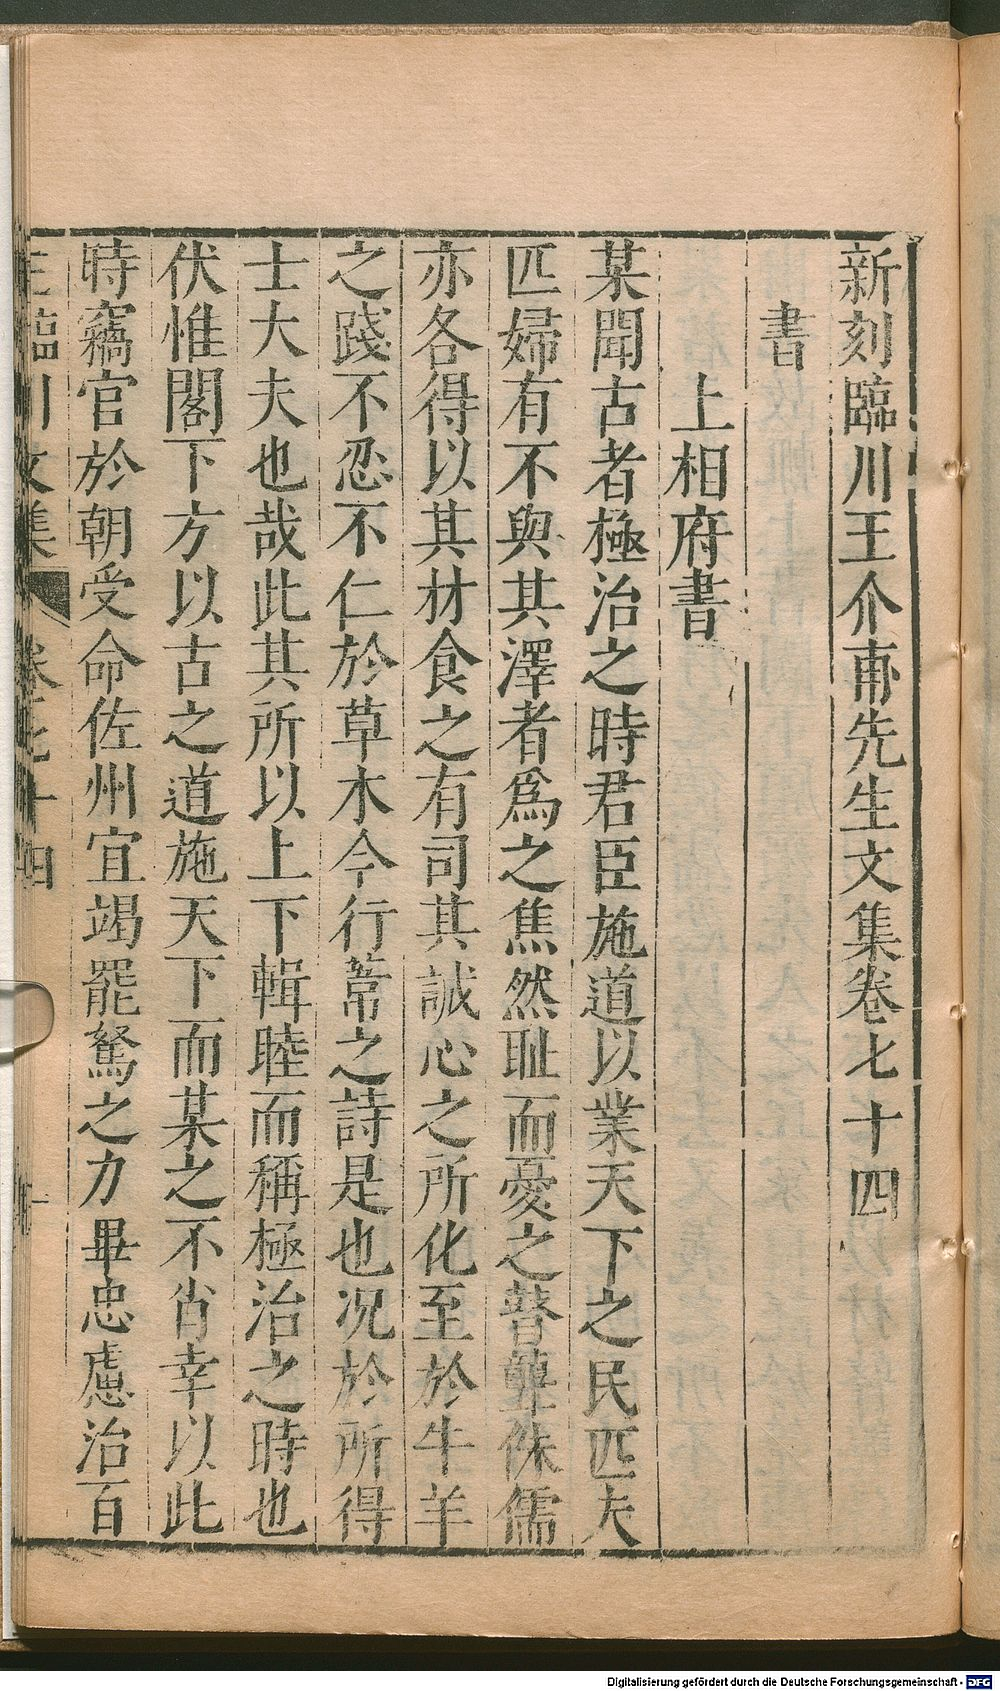 新刻臨川王介甫先生文集卷七十四
書
上相府書
某聞古者極治之時君臣施道以業天下之民匹夫
匹婦有不與其澤者爲之焦然耻而憂之瞽聾侏儒
亦各得以其材食之有司其誠心之所化至於牛羊
之踐不忍不仁於草木今行葦之詩是也况於所得
士大夫也哉此其所以上下輯睦而稱極治之時也
伏惟閣下方以古之道施天下而某之不肖幸以此
時竊官於朝受命佐州宜竭罷駑之力畢忠慮治百
王臨川文集 卷七十四 一
Digitalisierung gefördert durch die Deutsche Forschungsgemeinschaft - DFG